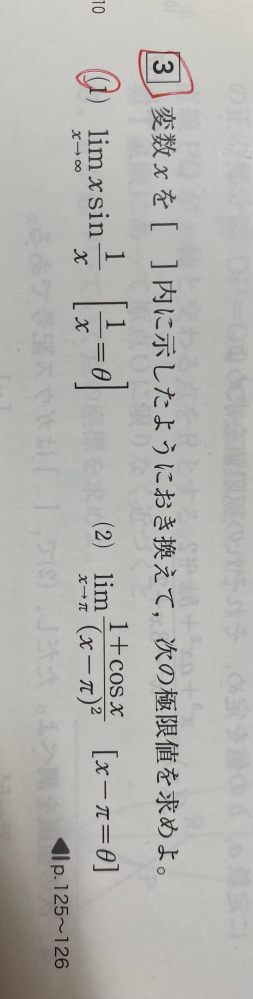 10
3 変数 x を [ ] 内に示したようにおき換えて，次の極限値を求めよ。
(1) lim_{x→∞} x sin 1/x [1/x = θ] (2) lim_{x→π} (1+cos x)/(x−π)² [x−π=θ]
◀p.125〜126